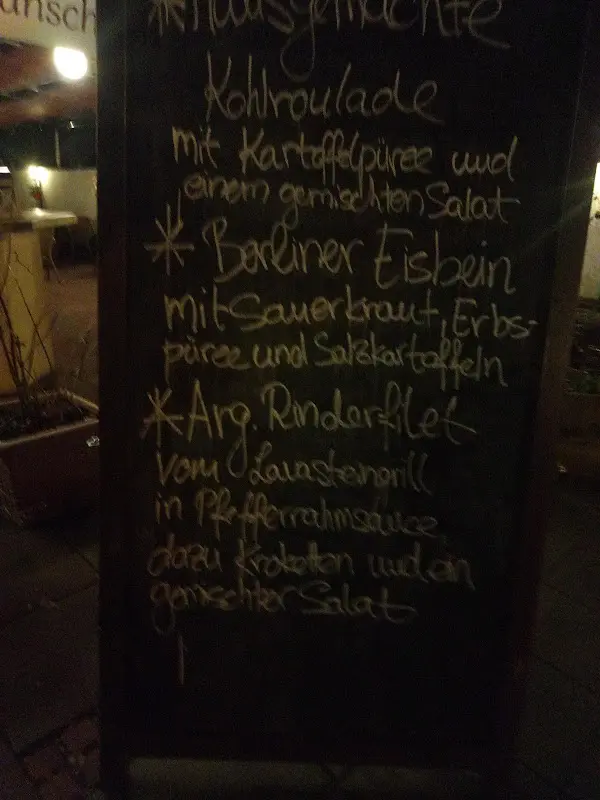 *Hausgemachte
Kohlroulade
mit Kartoffelpüree und
einem gemischten Salat
* Berliner Eisbein
mit Sauerkraut, Erbs-
püree und Salzkartoffeln
* Arg. Rinderfilet
vom Lavasteingrill
in Pfefferrahmsauce,
dazu Kroketten und ein
gemischter Salat